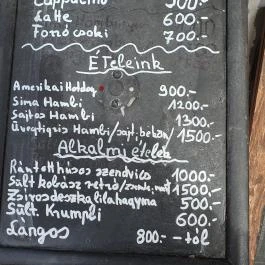 Cappuccino 500.-
Latte 600.-
Forró csoki 700.-
Ételeink
Amerikai Hotdog 900.-
Sima Hambi 1200.-
Sajtos Hambi 1300.-
Üvegtigris Hambi/sajt, bekon/ 1500.-
Alkalmi ételek
Rántott húsos szendvics 1000.-
Sült kolbász retró/zsemle, must 1500.-
Zsíros deszka lilahagyma 500.-
Sült. Krumpli 600.-
Lángos 800.- -tól